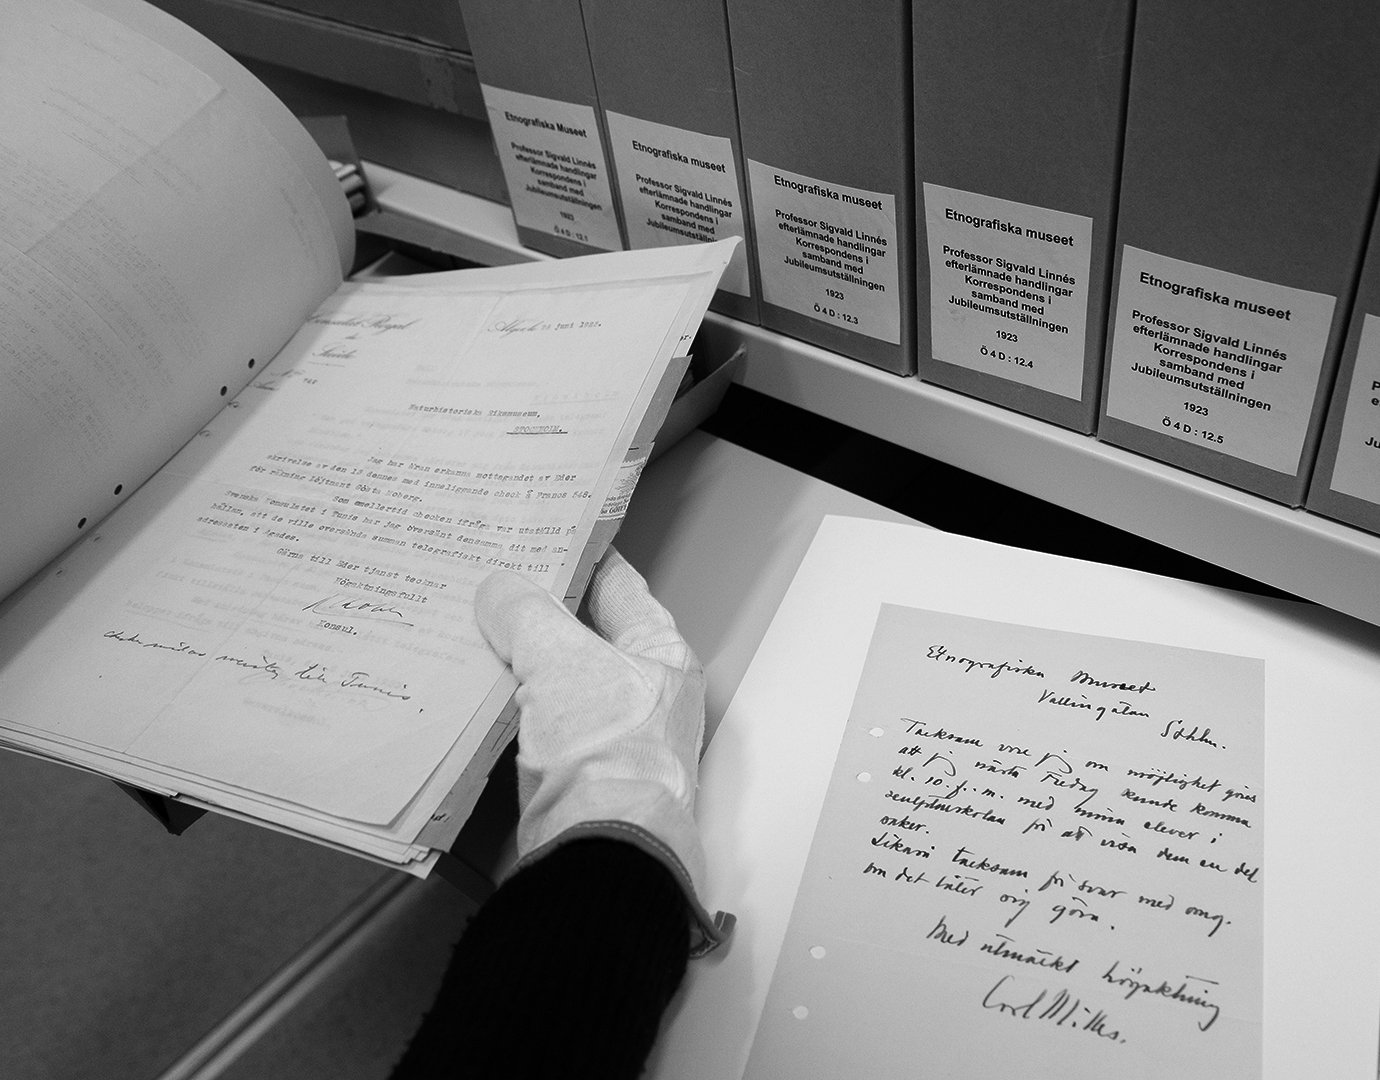 Etnografiska Museet
Professor Sigvald Linnés
efterlämnade handlingar
Korrespondens i
samband med
Jubileumsutställningen
1923
Ö 4 D : 12.1
Etnografiska museet
Professor Sigvald Linnés
efterlämnade handlingar
Korrespondens i
samband med
Etnografiska museet
Professor Sigvald Linnés
efterlämnade handlingar
Korrespondens i
samband med
Jubileumsutställningen
1923
Ö 4 D : 12.3
Etnografiska museet
Professor Sigvald Linnés
efterlämnade handlingar
Korrespondens i
samband med
Jubileumsutställningen
1923
Ö 4 D : 12.4
Etnografiska museet
Professor Sigvald Linnés
efterlämnade handlingar
Korrespondens i
samband med
Jubileumsutställningen
1923
Ö 4 D : 12.5
Consulat Royal
de
Suède
juni
Naturhistoriska Riksmuseum,
STOCKHOLM.
Jag har äran erkänna mottagandet av Eder
skrivelse av den 13 dennes med inneliggande check å Francs 548.
för räkning Löjtnant Gösta Moberg.
Som emellertid checken ifråga var utställd på
Svenska Konsulatet i Tunis har jag översänt densamma dit med an-
hållan, att de ville översända summan telegrafiskt direkt till
adressaten i Agades.
Gärna till Eder tjänst tecknar
Högaktningsfullt
Konsul.
till Tunis.
Etnografiska Museet
Vallingatan Sthlm.
Tacksam vore jag om möjlighet gives
att jag nästa Fredag kunde komma
kl. 10 f.m. med mina elever i
skulpturskolan för att visa dem en del
saker.
Likaså tacksam för svar med omg.
om det låter sig göra.
Med utmärkt högaktning
Carl Milles.